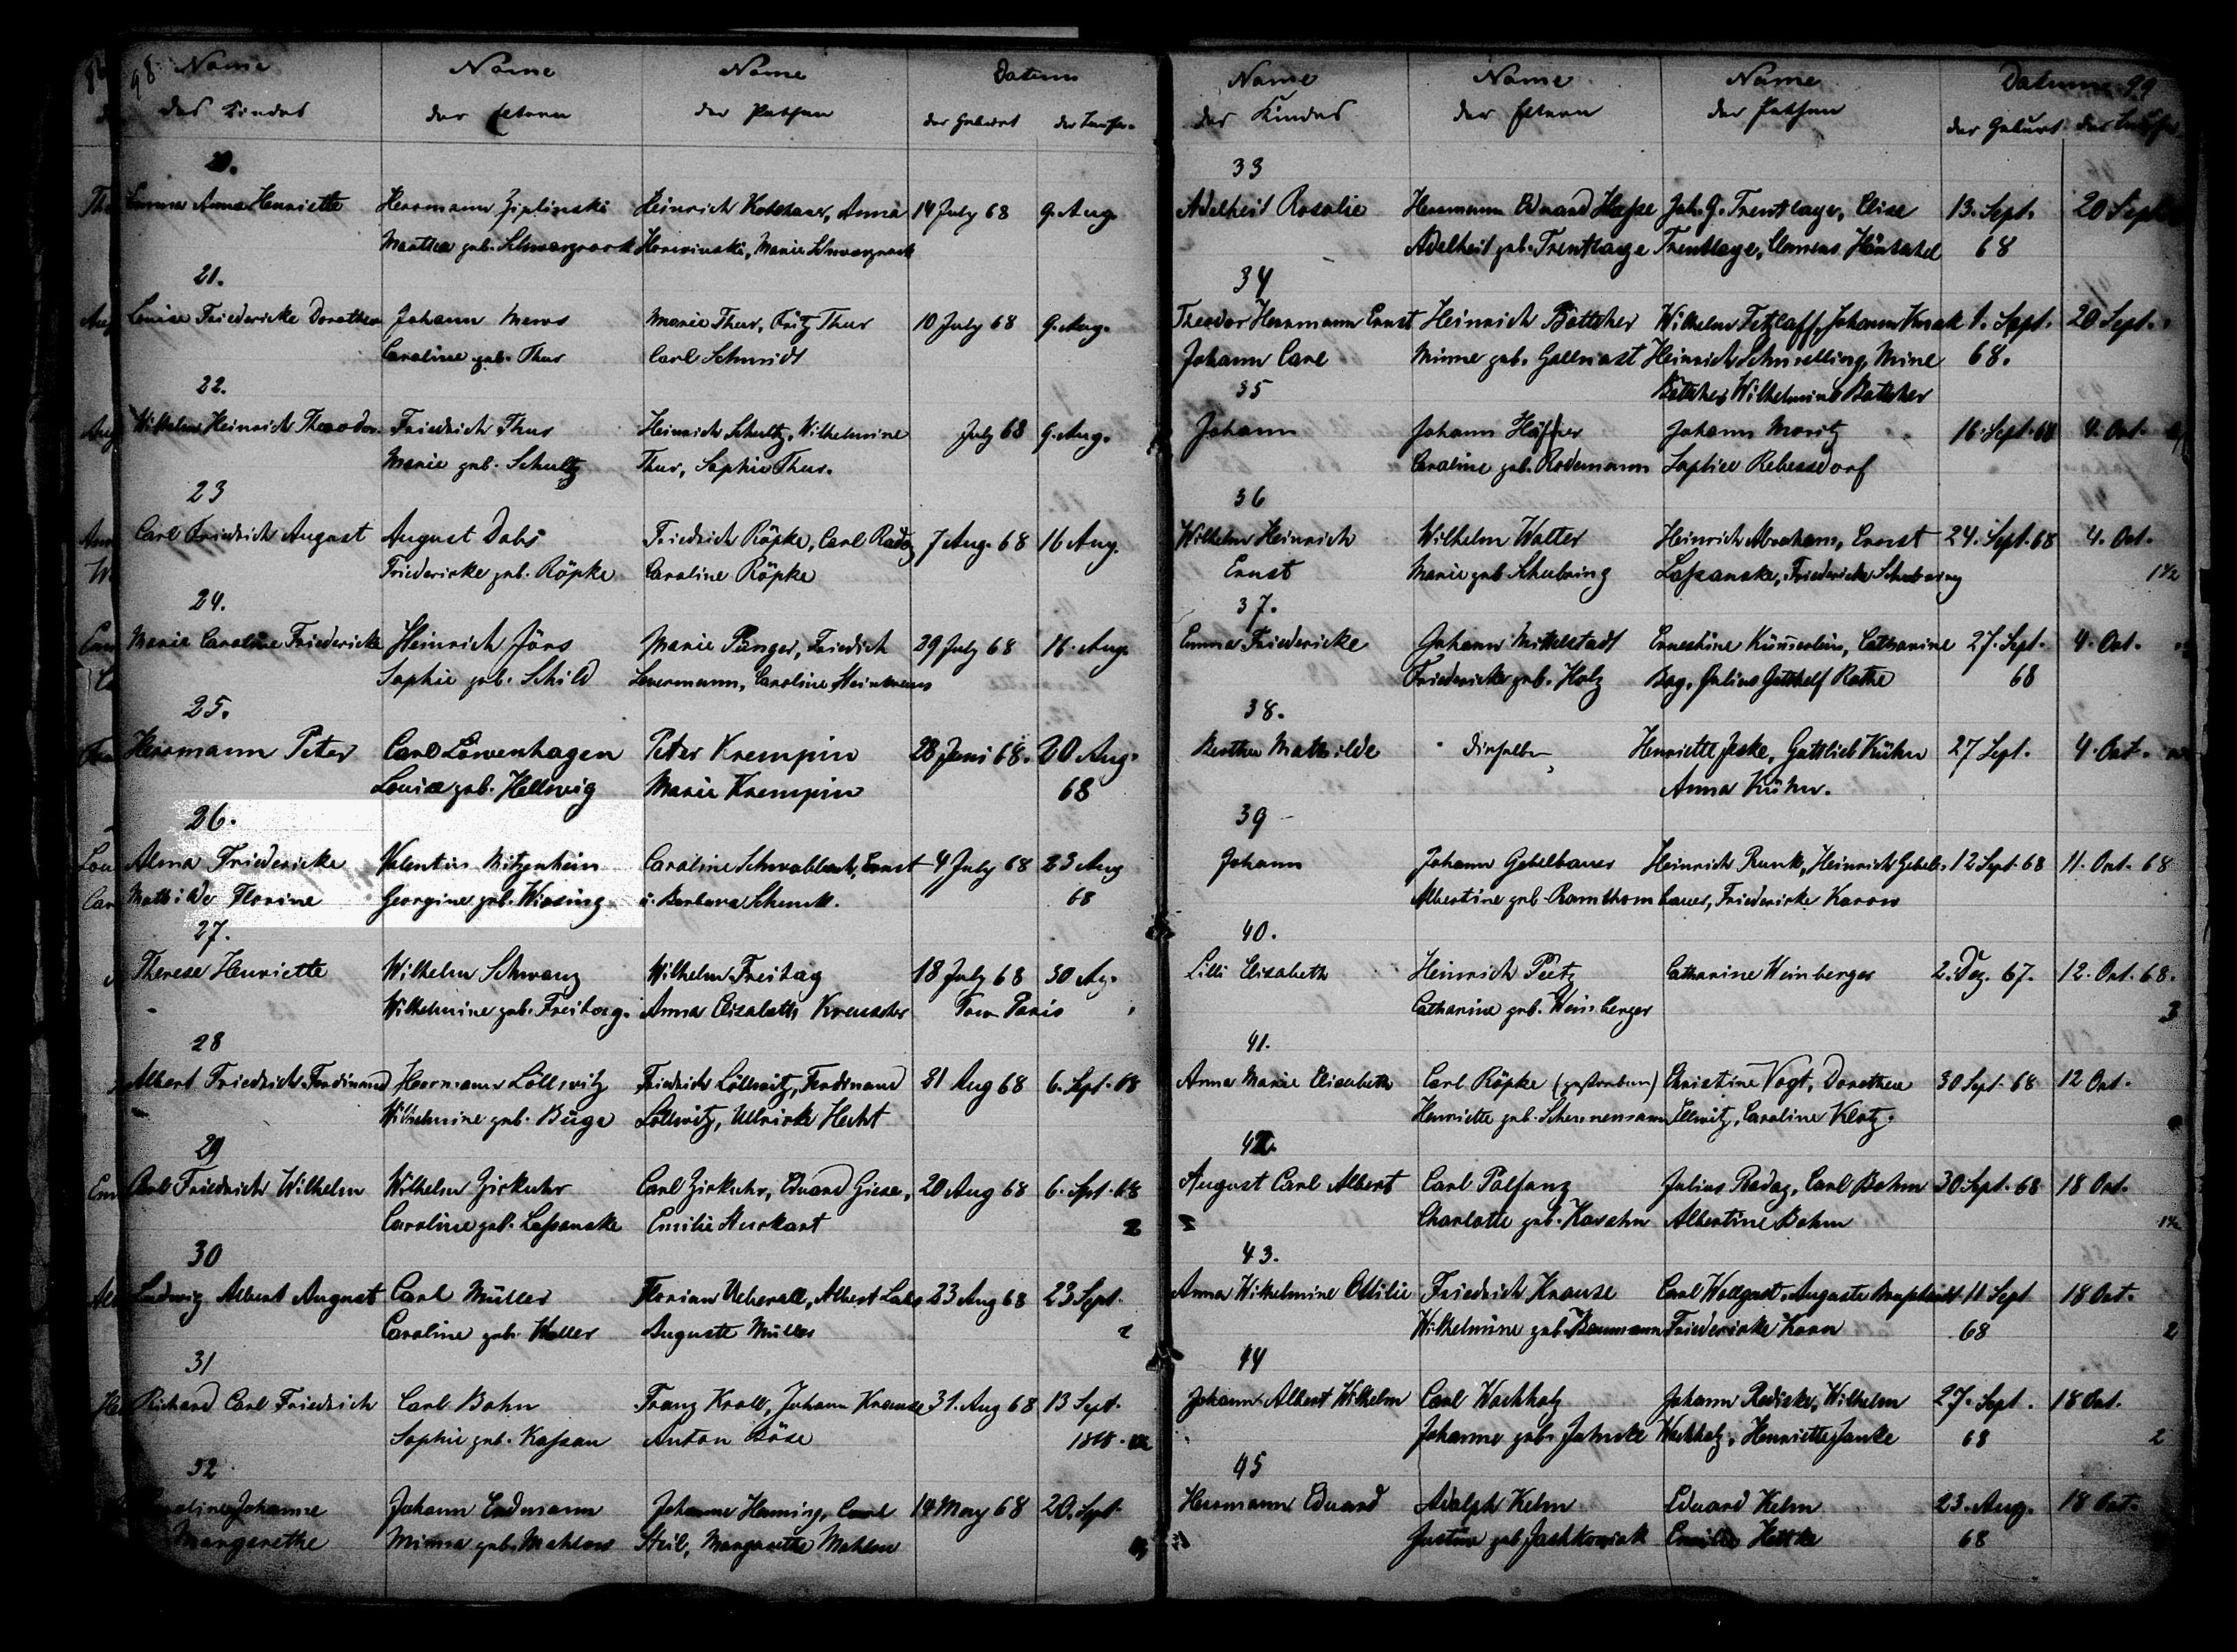 98 Name Name Name Datum
des Kindes der Eltern der Pathen der Geburt der Taufe
20.
Emma Anna Henriette Herrmann Ziplinski Heinrich Anna 14 July 68 9. Aug.
Martha geb. Schwarzrock Marie Schwarzrock
21.
Louise Friedericke Dorothea Johann Mews Marie Thur, Fritz Thur 10 July 68 9. Aug.
Caroline geb. Thur Carl Schmidt
22.
Wilhelm Heinrich Theodor Friedrich Thur Heinrich Schultz, Wilhelmine July 68 9. Aug.
Marie geb. Schultz Thur, Sophie Thur.
23
Carl Friedrich August August Dabs Friedrich Röpke, Carl Radaz 7 Aug. 68 16 Aug.
Friedericke geb. Röpke Caroline Röpke
24.
Marie Caroline Friedericke Heinrich Jörs Marie Pünger, Friedrich 29 July 68 16. Aug.
Sophie geb. Schild Levermann, Caroline
25.
Herrmann Peter Carl Löwenhagen Peter Krempin 28 Juni 68. 20 Aug.
Louise geb. Hellwig Marie Krempin 68
26.
Alma Friedericke Valentin Bitzenhein Caroline Ernst 4 July 68 23 Aug
Mathilde Florine Georgine geb. Wiesing u. Barbara Schenck. 68
27.
Therese Henriette Wilhelm Schwanz Wilhelm Freitag 18 July 68 30 Ag.
Wilhelmine geb. Freitag. Anna Elisabeth Town Paris
28
Albert Friedrich Ferdinand Hermann Löllwitz Friedrich Löllwitz, Ferdinand 31 Aug 68 6. Sept. 68
Wilhelmine geb. Büge Löllwitz, Ullricke Hecht
29
Carl Friedrich Wilhelm Wilhelm Zirkuhr Carl Zirkuhr, Eduard Giese, 20 Aug 68 6. Spt. 68
Caroline geb. Laßanske Emilie 2
30
Ludwig Albert August Carl Müller Florian Ueberall, Albert Labs 23 Aug 68 23 Sept.
Caroline geb. Auguste Müller 2
31
Richard Carl Friedrich Carl Bohn Franz Kroll, Johann Krause 31. Aug 68 13 Sept.
Sophie geb. Kaßan Anton Böse 1868.
32
Caroline Johanne Johann Erdmann Johanne Henning, 14 May 68 20. Sept.
Margarethe Minna geb. Mahlow Steil, Margarethe Mahlow
Name Name Name Datum 99
des Kindes der Eltern der Pathen der Geburt der Taufe
33
Adelheit Rosalie Herrmann Eduard Haße Joh. G. Trentlage, Elise 13. Sept. 20 Sept
Adelheit geb. Trentlage Trentlage, Clemens 68
34
Theodor Herrmann Ernst Heinrich Böttcher Wilhelm Tetzlaff, Johann 1. Sept. 20 Sept.
Johann Carl Minne geb. Gollnast Heinrich Schnelling, Mine 68.
35 Böttcher, Wilhelmine Böttcher
Johann Johann Häffner Johann Moritz 16. Sept. 68 4. Oct.
Caroline geb. Rodemann Sophie Rebessdorf
36
Wilhelm Heinrich Wilhelm Walter Heinrich Abraham, Ernst 24. Sept. 68 4. Oct.
Ernst Marie geb Schubring Laßanske, Friedericke Schubring 1 1/2
37.
Emma Friedericke Johann Mittelstadt Ernestine Catharine 27. Sept. 4. Oct.
Friedericke geb. Holz Julius Gotthelf Rothe 68
38.
Bertha Mathilde dieselben Henriette Jeske, Gottlieb Kühn 27 Sept. 4. Oct.
Anna Kühn.
39
Johann Johann Gebelbauer Heinrich Runk, Heinrich Gebel- 12 Sept 68 11. Oct. 68
Albertine geb. Ramthom bauer, Friedericke Karow
40.
Lilli Elisabeth Heinrich Peetz Catharine Weinberger 2. Dez. 67. 12. Oct. 68.
Catharine geb. Weinberger 3
41.
Anna Marie Elisabeth Carl Röpke (gestorben) Christine Vogt, Dorothea 30 Sept. 68 12 Oct.
Henriette geb. Ellwitz, Caroline Klotz.
42.
August Carl Albert Carl Palfanz Julius Radaz, Carl Bohm 30 Sept. 68 18 Oct.
Charlotte geb. Albertine Bohm 1 1/2
43.
Anna Wilhelmine Ottilie Friedrich Krause Carl Wollgast, Auguste 11 Sept 18 Oct.
Wilhelmine geb. Baumann Friedericke Korn 68 2
44
Johann Albert Wilhelm Carl Wachholz Johann Radicke, Wilhelm 27. Sept. 18 Oct.
Johanne geb. Jahncke Wachholz, Henriette Janke 68 2
45
Herrmann Eduard Adolph Kelm Eduard Kelm 23. Aug. 18 Oct.
Justine geb. Jashkowiak Emilie 68